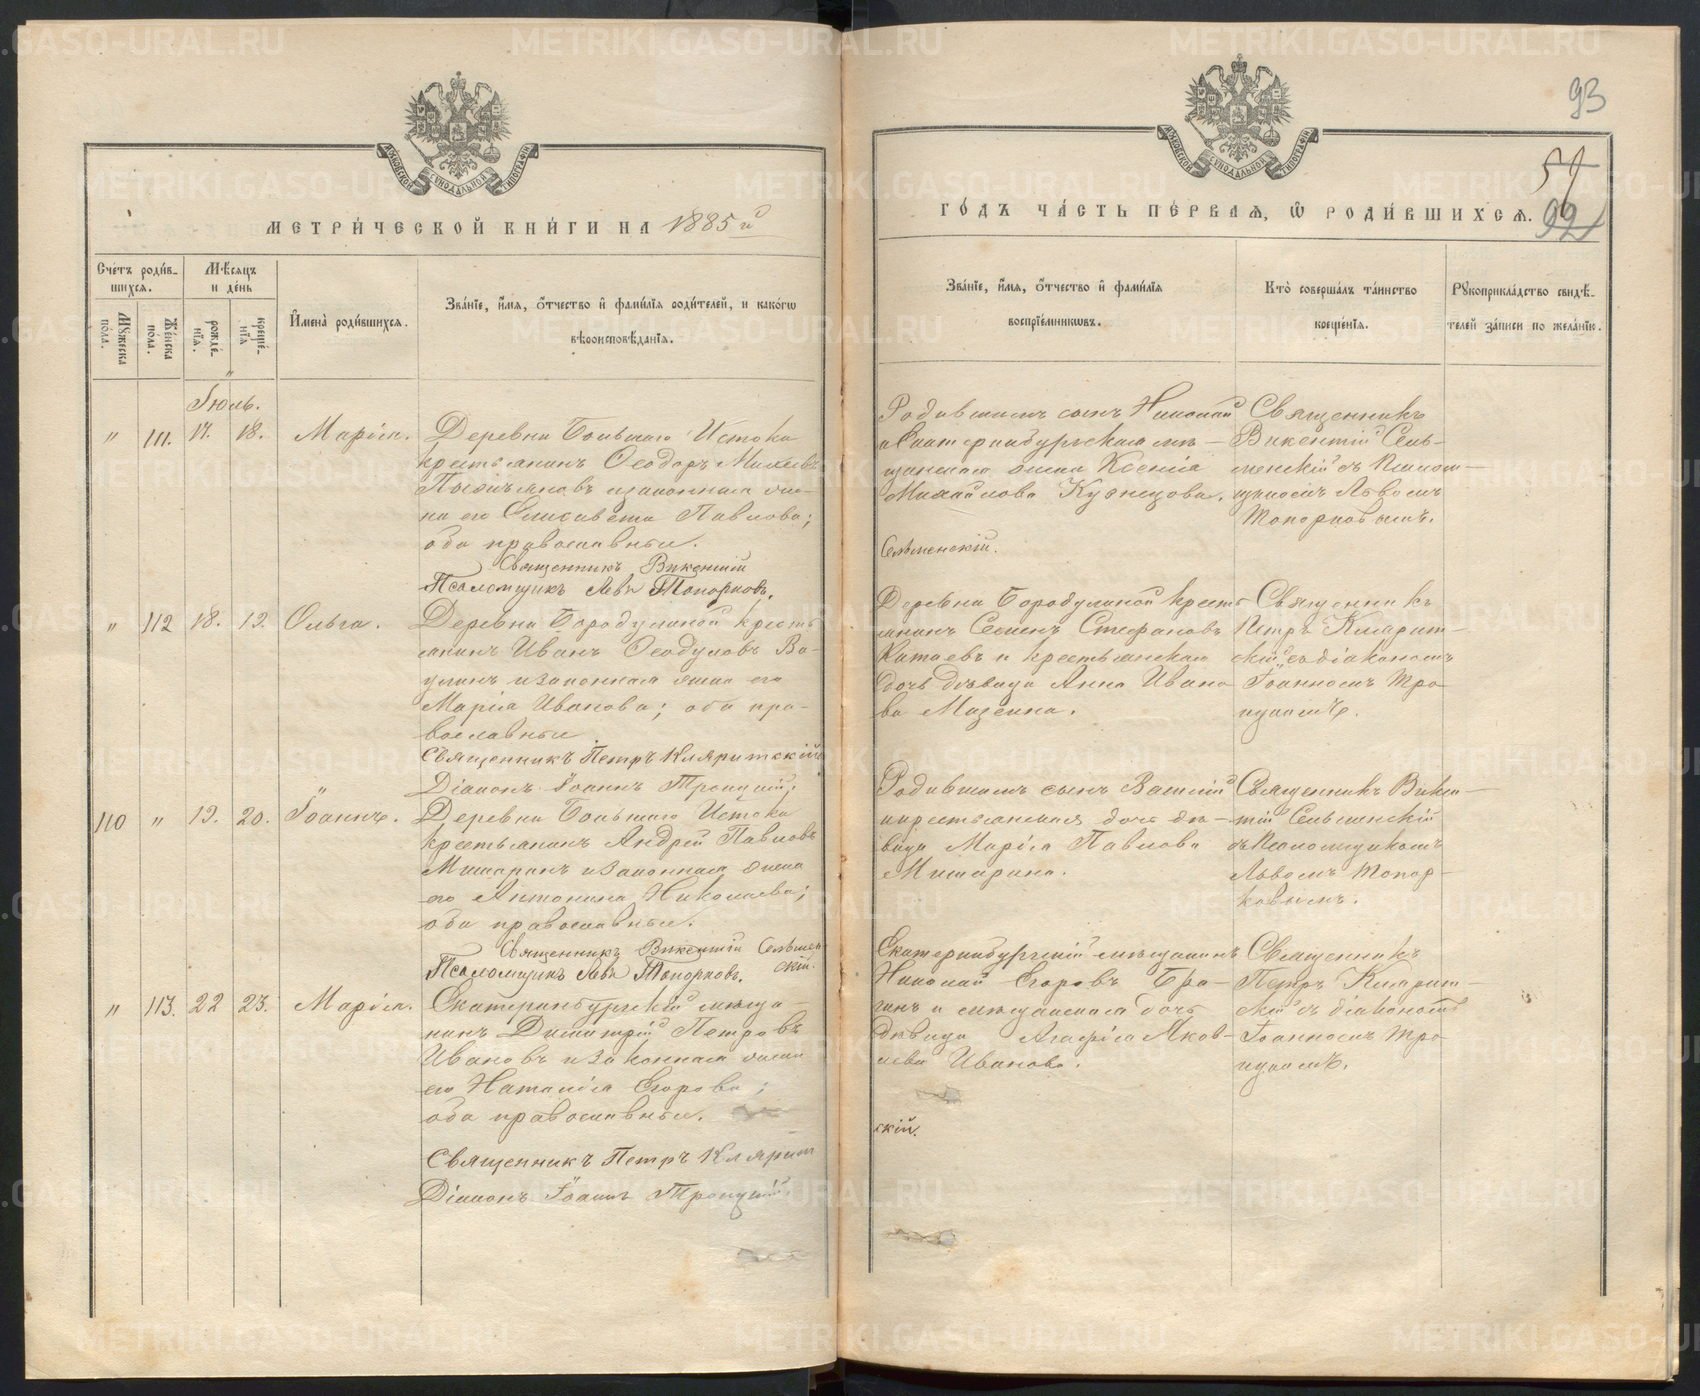 93
57
92
МЕТРИ́ЧЕСКОЙ КНИ́ГИ НА 1885й
ГО́ДЪ ЧА́СТЬ ПЕ́РВАЯ, Ѿ РОДИ́ВШИХСЯ.
Сче́тъ роди́в-
шихся.
Мꙋжеска
пола.
Же́нска
пола.
Мѣсяцъ
и де́нь
рожде́-
нїя.
креще́-
нїя
И҆мена̀ роди́вшихся.
Зва́нїе, и҆́мя, ѻ҆́тчество и҆ фами́лїя родителей, и како́гѡ
вѣроисповѣ́данїя.
Іюль.
" 111. 17. 18. Марія.
Деревни Большаго Истока
крестьянинъ Ѳеодоръ Михеевъ
и законная же-
на его Елисавета Павлова;
оба православные.
Священникъ Викентій
Псаломщикъ Левъ Топорковъ.
" 112 18. 19. Ольга.
Деревни Бородулиной кресть
янинъ Иванъ Ѳеодуловъ Ва-
улинъ и законная жена его
Марія Иванова; оба пра-
вославные
Священникъ Петръ Кляритскій
Діаконъ Іоаннъ Троицкій.
110 " 19. 20. Іоаннъ.
Деревни Большаго Истока
крестьянинъ Андрей Павловъ
Мишаринъ и законная жена
его Антонина Николаева;
оба православные.
Священникъ Викентій Сельмен-
скій.
Псаломщикъ Левъ Топорковъ.
" 113. 22 23. Марія.
Екатеринбургскій мѣща-
нинъ Димитрій Петровъ
Ивановъ и законная жена
его Наталія Егорова;
оба православные.
Священникъ Петръ Клярит
Діаконъ Іоаннъ Троицкій.
Зва́нїе, и҆́мя, ѻ҆́тчество и҆ фами́лїя
воспрїе́мникѡвъ.
Кто̀ соверша́лъ та́инство
креще́нїя.
Рꙋкоприкла́дство свидѣ́-
телей за́писи по жела́нїю.
Родившаго сынъ Николай
и Екатеринбургская мѣ-
щанская жена Ксенія
Михайлова Кузнецова.
Сельменскій.
Священникъ
Викентій Сель-
менскій съ Псалом-
щикомъ Львомъ
Топорковымъ.
Деревни Бородулиной кресть
янинъ Семенъ Стефановъ
Катаевъ и крестьянская
дочь дѣвица Анна Ивано
ва Мазеина.
Священникъ
Петръ Клярит-
скій съ діакономъ
Іоанномъ Тро
ицкимъ.
Родившаго сынъ Василій
и крестьянская дочь дѣ-
вица Марія Павлова
Мишарина.
Священникъ Викен-
тій Сельменскій
съ Псаломщикомъ
Львомъ Топор-
ковымъ.
Екатеринбургскій мѣщанинъ
Николай Егоровъ Бра-
гинъ и мѣщанская дочь
дѣвица Агафія Яков-
лева Иванова.
скій.
Священникъ
Петръ Клярит-
скій съ діакономъ
Іоанномъ Тро
ицкимъ.
METRIKI.GASO-URAL.RU